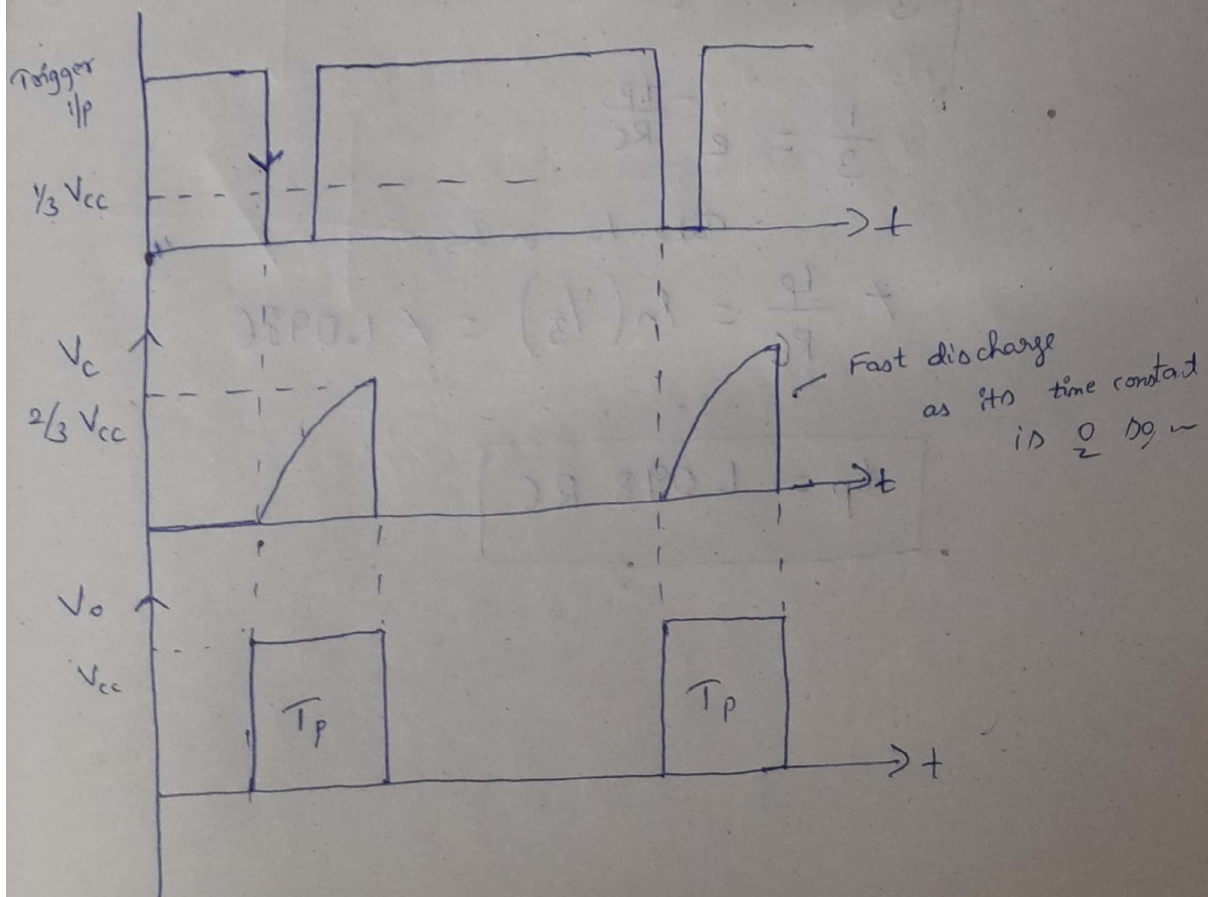 Trigger
i/p
1/3 Vcc
t
Vc
2/3 Vcc
Fast discharge
as its time constant
is 0
t
Vo
Vcc
Tp
Tp
t